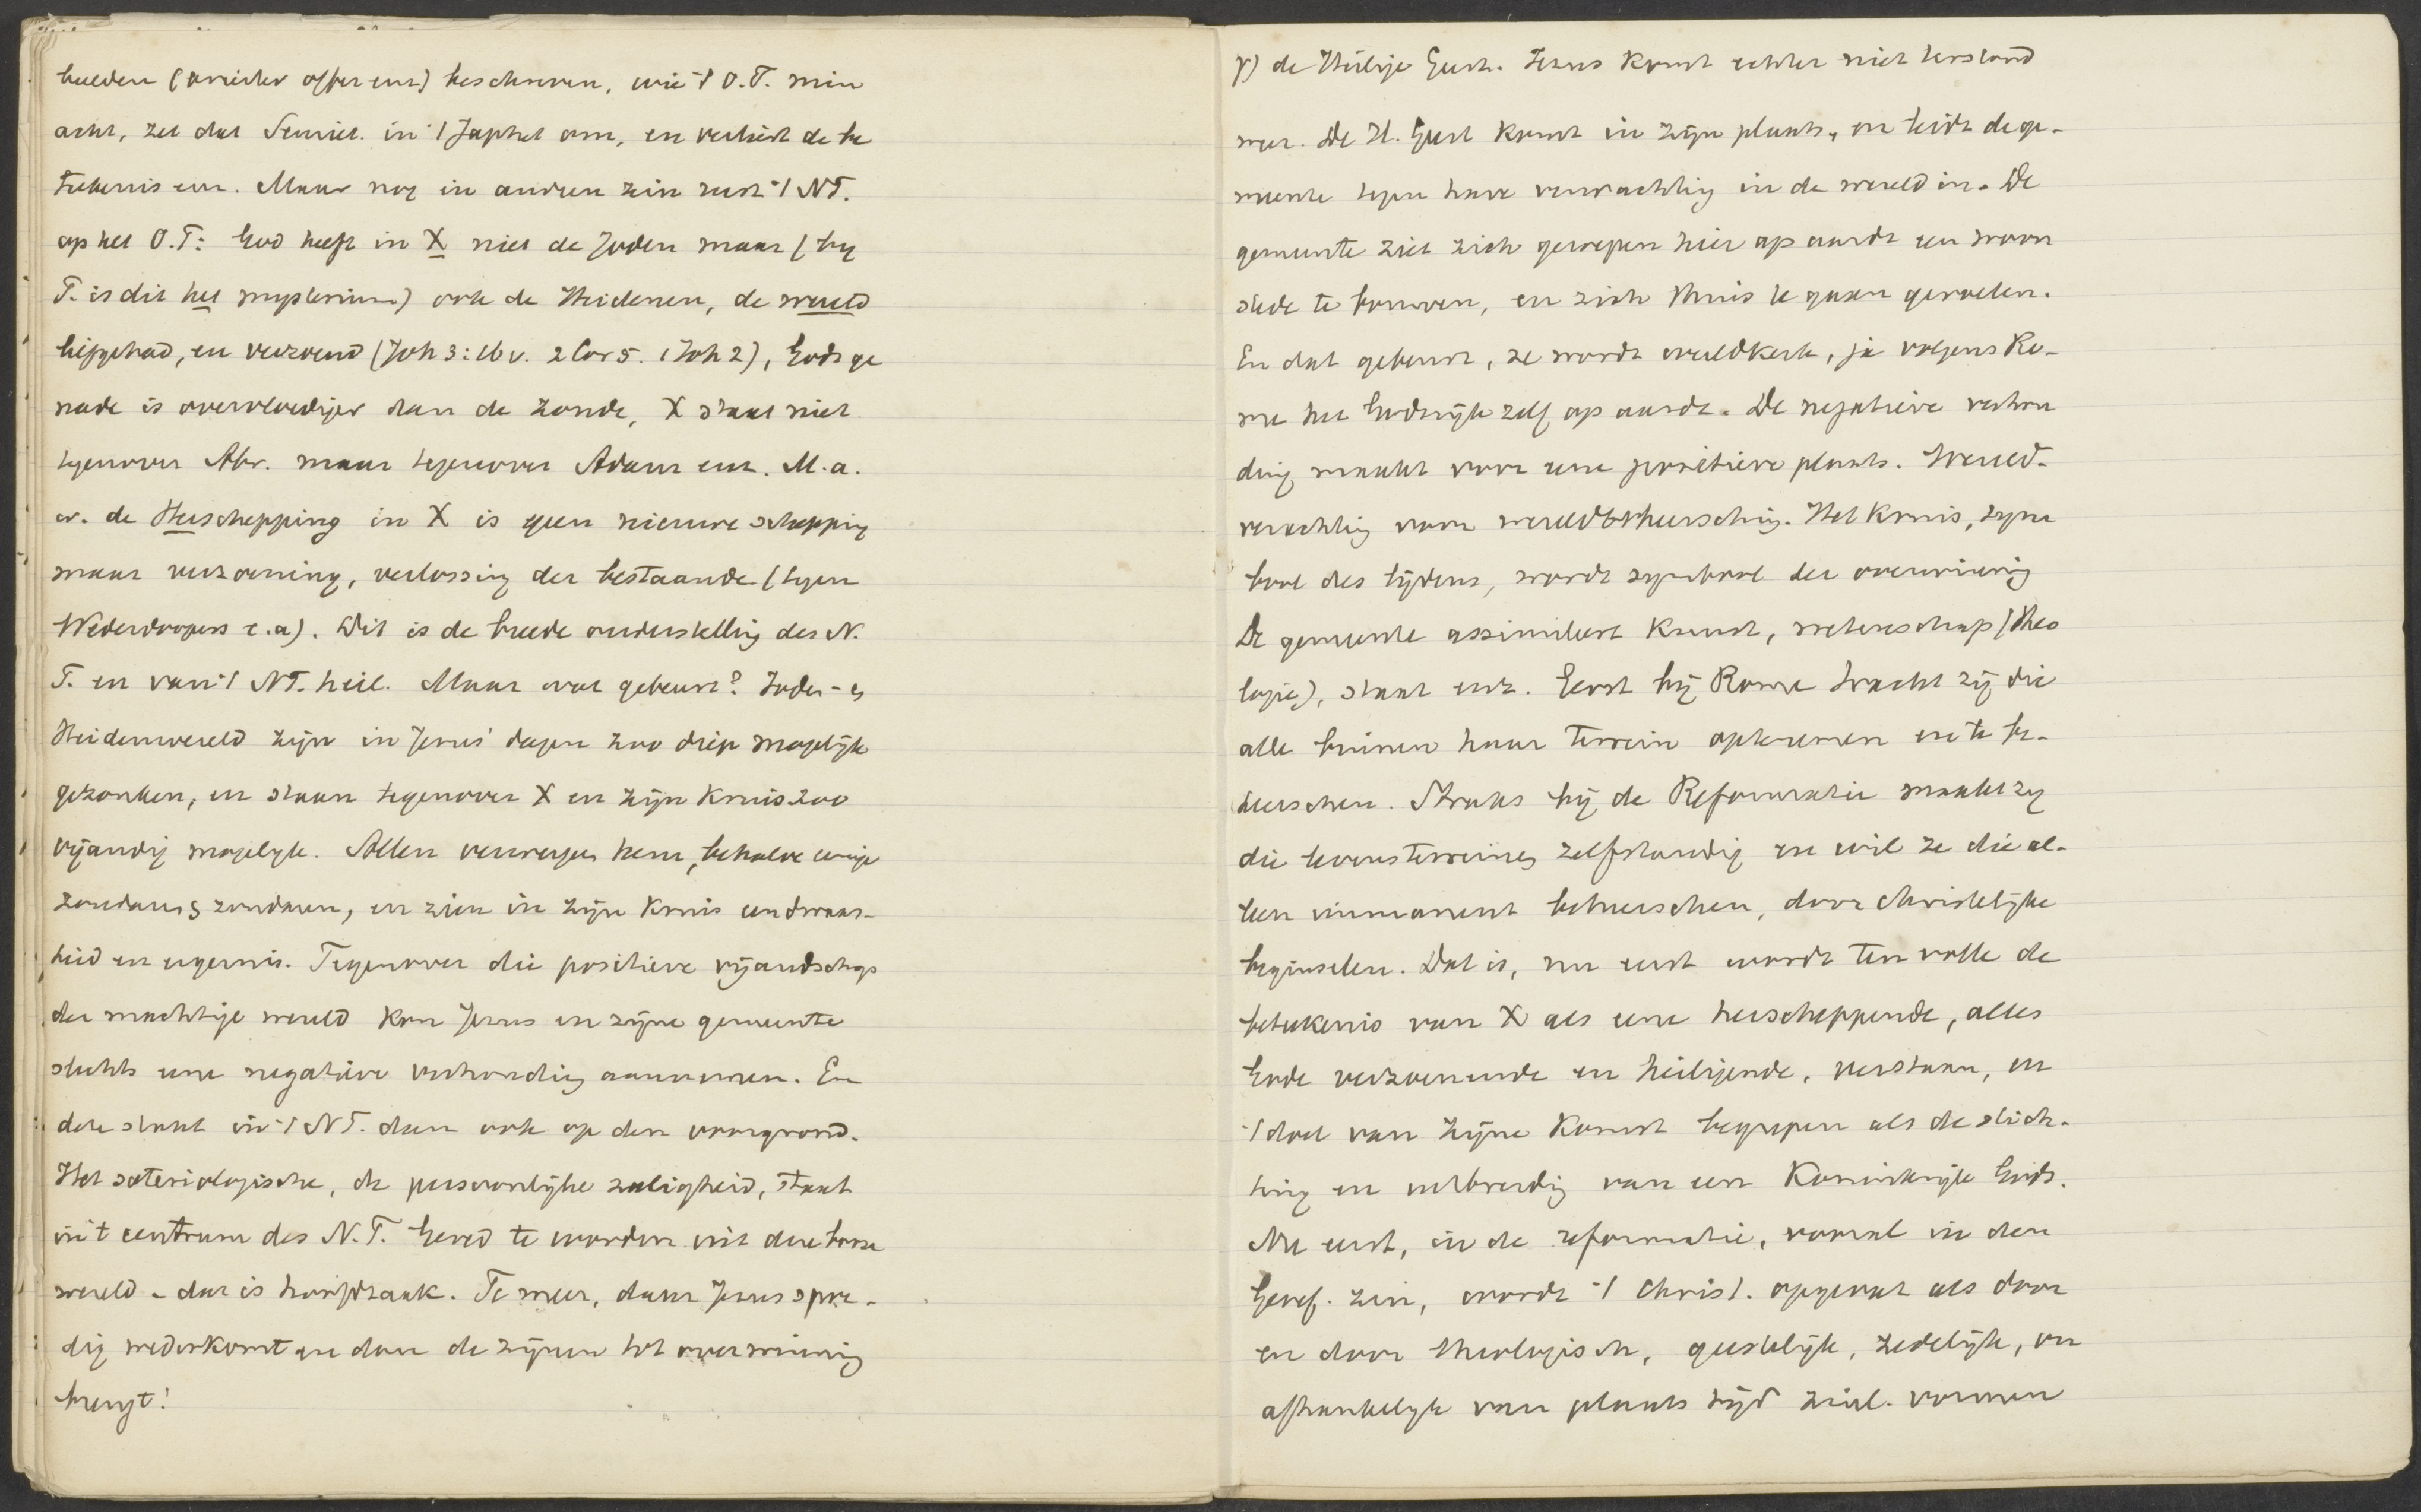 beelden (priester offer enz) beschreven, wie 't O.T. min
acht, zet dat Semiet. in 't Japhet om, en verliest de be
teekenis enz. Maar nog in anderen zin rust 't NT.
op het O.T: God heeft in X niet de Joden maar (by
T. is dit het mysterium) ook de Heidenen, de wereld
liefgehad, en verzoend (Joh 3:16 v. 2 Cor 5. 1 Joh 2), Gods ge
nade is overvloediger dan de zonde, X staat niet
tegenover Abr. maar tegenover Adam enz. M.a.
w. de Herschepping in X is geen nieuwe schepping
maar verzoening, verlossing der bestaande (tegen
Wederdoopers e.a). Dit is de breede onderstelling des N.
T. en van 't NT. heil. Maar wat gebeurt? Joden- en
Heidenwereld zijn in Jezus' dagen zoo diep mogelijk
gezonken, en staan tegenover X en zijn Kruis zoo
vijandig mogelyk. Allen verwerpen hem, behalve eenige
zondaars zondaren, en zien in zijn Kruis een dwaas-
heid en ergernis. Tegenover die positieve vijandschap
der machtige wereld kon Jezus en zijne gemeente
slechts eene negatieve verhouding aannemen. En
deze staat in 't NT. dan ook op den voorgrond.
Het soteriologische, de persoonlijke zaligheid, staat
in 't centrum des N.T. Gered te worden uit deze booze
wereld - dat is hoofdzaak. Te meer, daar Jezus spoe-
dig wederkomt en dan de zijnen tot overwinning
brengt!
γ) de Heilige Geest. Jezus komt echter niet terstond
weer. De H. Geest komt in zijn plaats, en leidt de ge-
meente tegen hare verwachting in de wereld in. De
gemeente ziet zich geroepen hier op aarde een woon
stede te bouwen, en zich thuis te gaan gevoelen.
En dat gebeurt, ze wordt wereldkerk, ja volgens Ro-
me het Godsrijk zelf op aarde. De negatieve verhou
ding maakt voor eene positieve plaats. Wereld-
verachting voor wereldbeheersching. Het Kruis, sym
bool des lijdens, wordt symbool der overwinning
De gemeente assimileert Kunst, wetenschap (theo
logie), staat enz. Eerst bij Rome tracht zij die
alle binnen haar terrein op te nemen en te be-
heerschen. Straks bij de Reformatie maakt zy
die levensterreinen zelfstandig en wil ze die al-
len immanent beheerschen, door christelijke
beginselen. Dat is, nu eerst wordt ten volle de
beteekenis van X als eene herscheppende, alles
Gode verzoenende en heiligende, verstaan, en
't doel van zijne Komst begrepen als de stich-
ting en uitbreiding van een Koninkrijk Gods.
Nu eerst, in de reformatie, vooral in den
Geref. zin, wordt 't Christ. opgevat als door
en door theologisch, geestelijk, zedelijk, on
afhankelijk van plaats tijd ziel. vormen